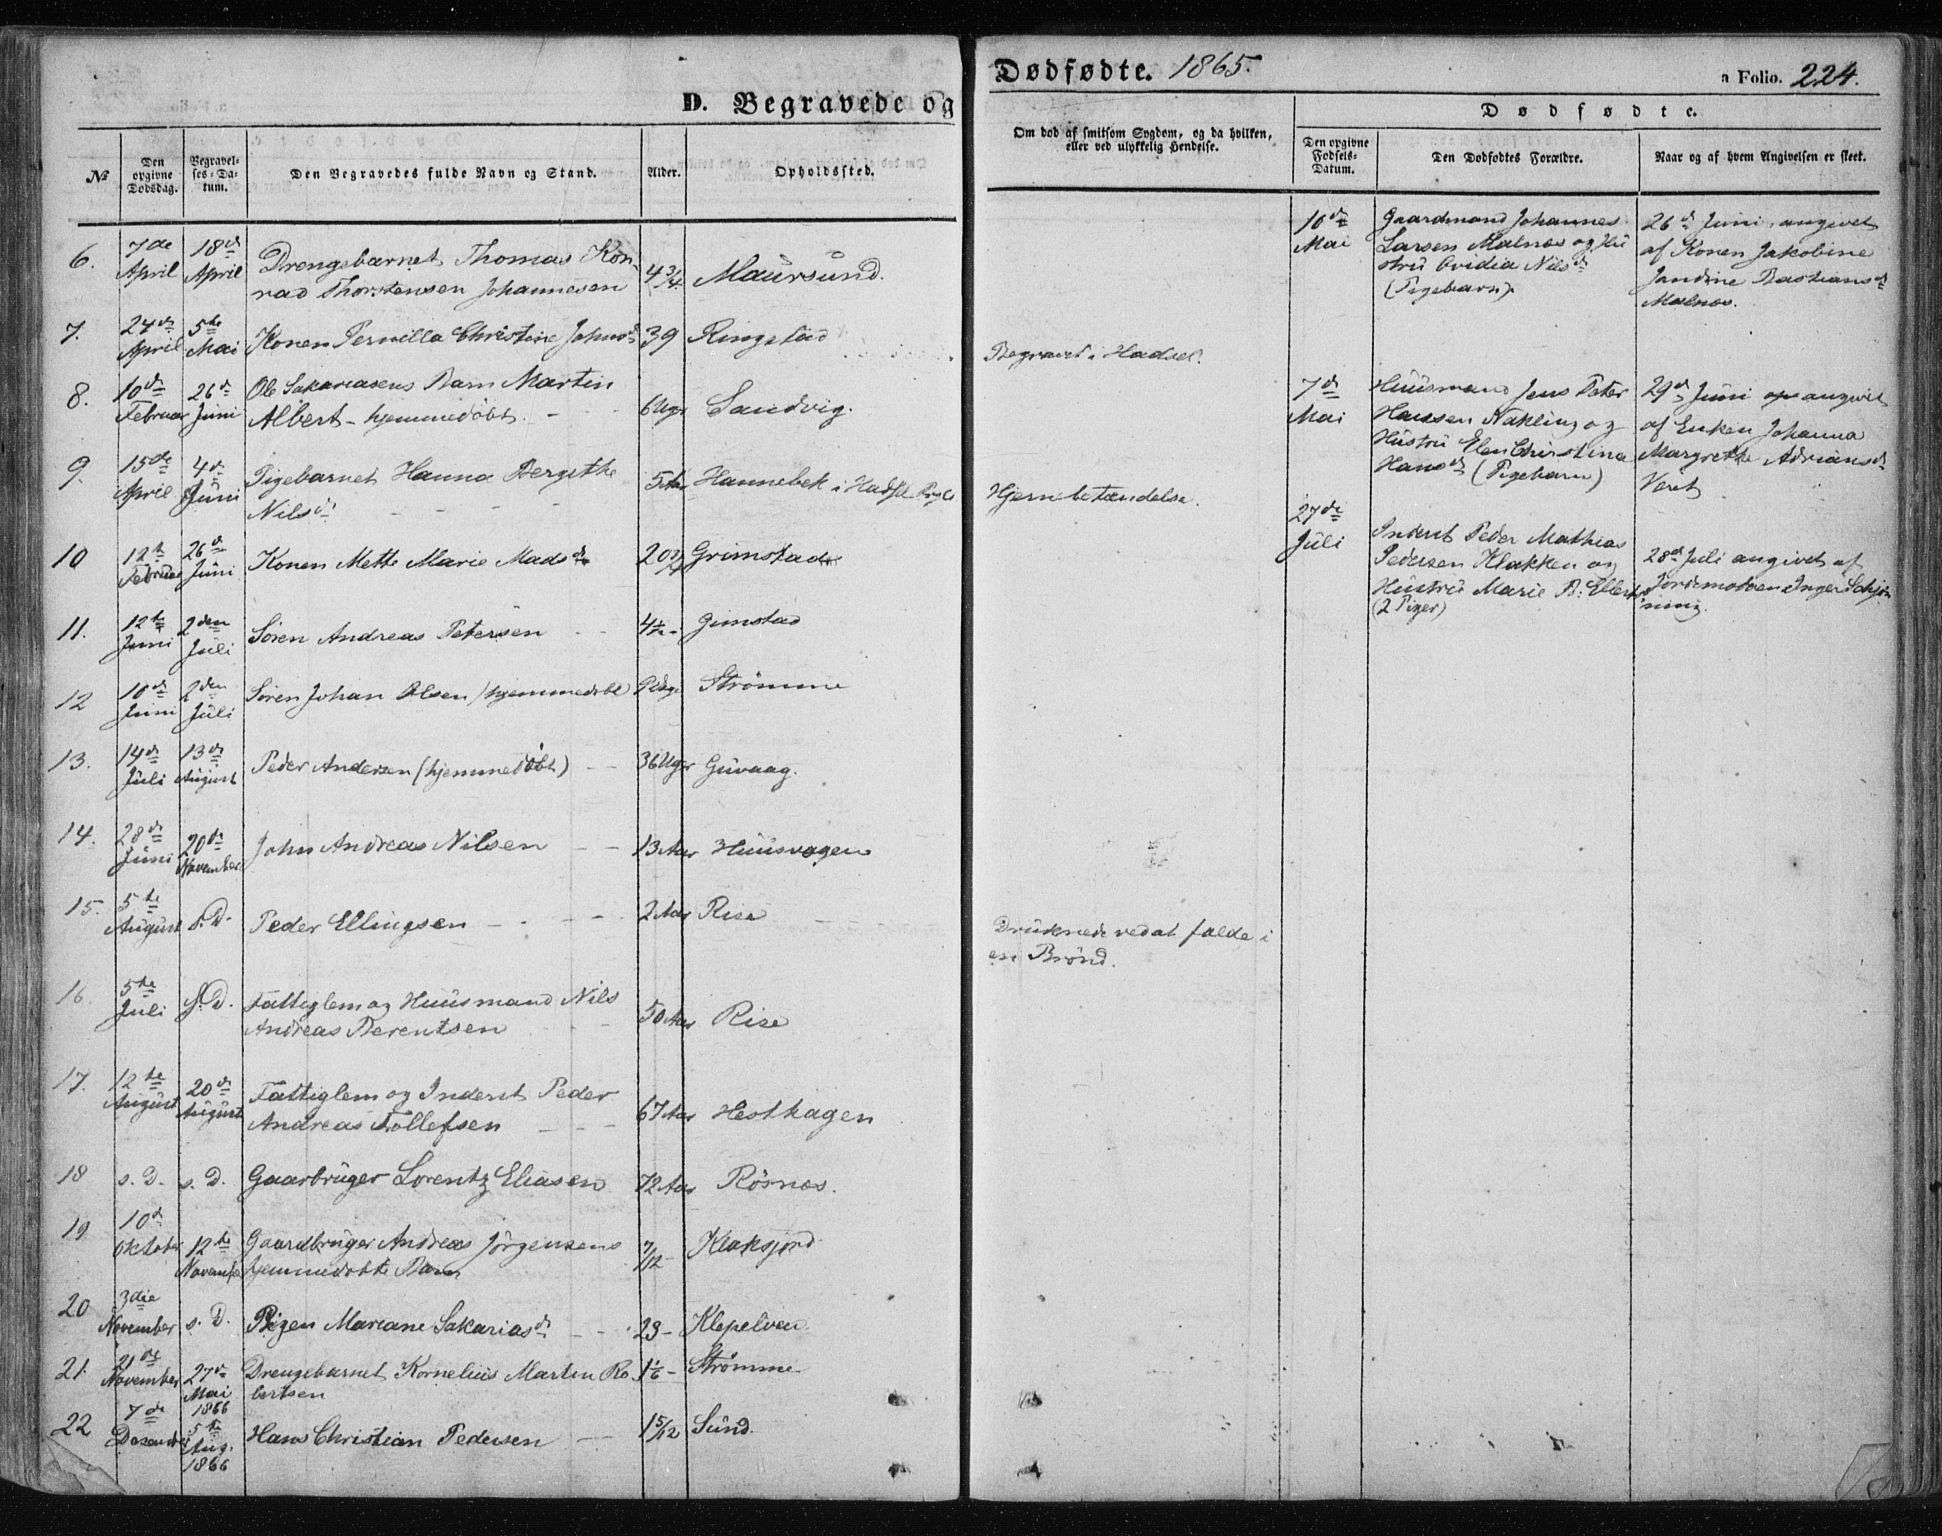 D. Begravede og
Dødfødte. 1865.
a Folio. 224.
No
Den opgivne Dødsdag.
Begravelses-Datum.
Den Begravedes fulde Navn og Stand.
Alder.
Opholdssted.
Om død af smitsom Sygdom, og da hvilken,
eller ved ulykkelig Hendelse.
Dødfødte.
Den opgivne Fødsels-Datum.
Den Dødfødtes Forældre.
Naar og af hvem Angivelsen er skeet.
6. 7de April 18de April Drengebarnet Thomas Kon-
rad Thorstensen Johannesen 4 3/4 Maursund.
7. 24de April 5te Mai Konen Pernilla Christine Johnsd 39 Ringstad
Begravet i Hadsel.
8. 10de Februar 26de Juni Ole Sakariasens Barn Martin
Albert - hjemmedøbt. 6 Uger Sandvig.
9. 15de April 4de Juni Pigebarnet Hanna Bergithe
Nilsd 5 Hannebek i
Hjernebetændelse.
10 12te Februar 26de Juni Konen Mette Marie Madsd Grimstad
11. 12te Juni 2den Juli Søren Andreas Petersen 4½ Gimstad
12 10de Juni 2den Juli Søren Johan Olsen (hjemmedøbt) Strømme
13. 14de Juli 13de August Peder Andersen (hjemmedøbt) 36 Uger Guvaag.
14. 28de Juni 20de November John Andreas Nilsen 13 Aar Huusvagen
15. 5te August s. D. Peder Ellingsen 2 Aar Rise
Druknede ved at falde i
en Brønd.
16. 5te Juli s. D. Fattiglem og Huusmand Nils
Andreas Berentsen 50 Aar Rise
17. 12te August 20de August Fattiglem og Inderst Peder
Andreas Tollefsen 67 Aar Hesthagen
18 s. D. s. D. Gaarbruger Lorentz Eliasen 72 Aar Rösnæs.
19 10de Oktober 12te November Gaardbruger Andreas Jörgensens
hjemmedøbte Barn 7/12 Klaksjord
20 3die November s. D. Pigen Mariane Sakariasd 23 Klepelven.
21. 21de November 27de Mai 1866 Drengebarnet Kornelius Martin Ro-
bertsen 1 1/6 Strømme
22 7de December 5te Aug. 1866 Hans Christian Pedersen 1 5/12 Sund.
10de Mai
Gaardmand Johannes
Larsen Malnæs og Hu
stru Ovidia Nilsd
(Pigebarn).
26de Juni, angivet
af Konen Jakobine
Jandine Bastiansd
Malnæs.
7de Mai
Huusmand Jens Peter
Hansen Nakling og
Hustru Elen Christina
Hansd (Pigebarn)
29de Juni angivet
af Enken Johanna
Margrethe Adriansd
Voret
27de Juli
Inderst Peder Mathias
Pedersen Klakken og
Hustru Marie B: Ellert
(2 Piger)
28de Juli angivet af
Jordemoderen Inger Schjø
ning.